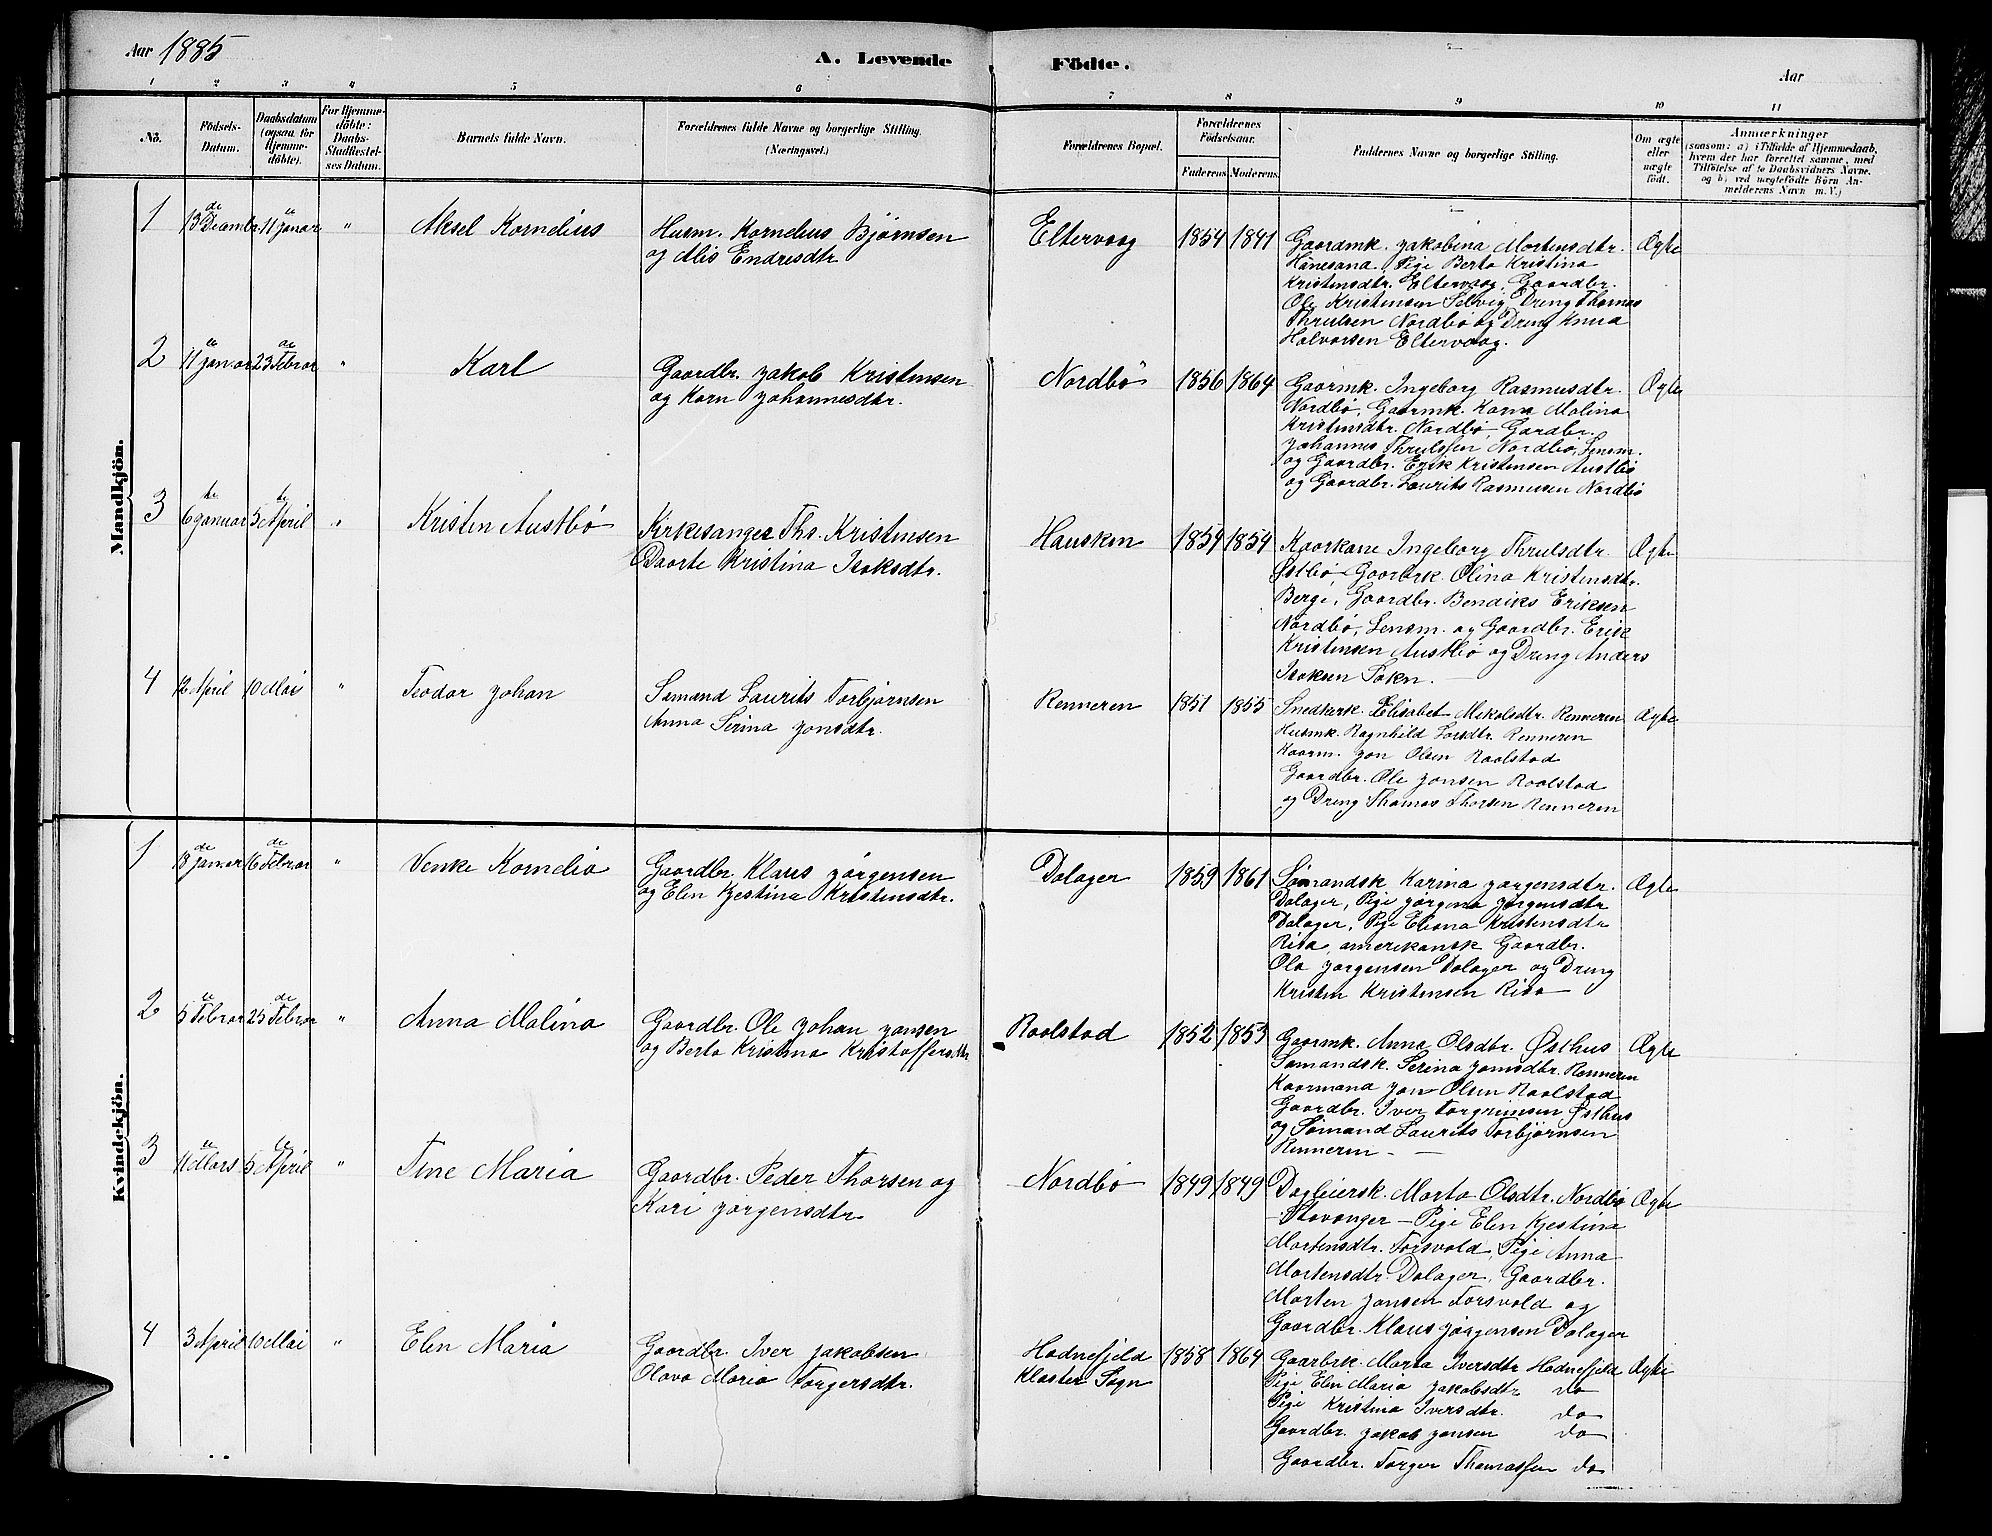 Aar 1885
A. Levende
Födte.
Aar
1 2 3 4 5 6 7 8 9 10 11
No.
Födsels-
Datum.
Daabsdatum
(ogsaa for
Hjemme-
döbte).
For Hjemme-
döbte:
Daabs-
Stadfæstel-
ses Datum.
Barnets fulde Navn.
Forældrenes fulde Navne og borgerlige Stilling.
(Næringsvei.)
Forældrenes Bopæl.
Forældrenes
Födselsaar.
Faderens Moderens
Faddernes Navne og borgerlige Stilling.
Om ægte
eller
uægte
födt.
Anmærkninger
(saasom: a) i Tilfælde af Hjemmedaab,
hvem der har forrettet samme, med
Tilföielse af to Daabsvidners Navne.
og b) ved uægtefödte Börn An-
melderens Navn m. V.)
Mandkjön.
1 13de Decembr. 11te Januar " Aksel Kornelius
Husm. Kornelius Bjørnsen
og Alis Endresdtr.
Eltervaag 1854 1841
Gaardmk. Jakobina Mortensdtr. Ægte
Hanesand, Pige Berta Kristina
Kristensdtr. Eltervaag, Gaardbr.
Ole Kristensen Selvig, Dreng Thomas
Thrulsen Nordbø og Dreng Knud
Halvorsen Eltervaag.
2 11te Januar 23de Februar " Karl
Gaardbr. Jakob Kristensen
og Karn Johannesdtr.
Nordbø 1856 1864
Gaarmk. Ingeborg Rasmusdtr. Ægte
Nordbø, Gaarmk. Karna Malina
Kristensdtr. Nordbø, Gardbr.
Johannes Thrulssen Nordbø, Lensm.
og Gaardbr. Erik Kristensen Austbø
og Gaardbr. Laurits Rasmussen Nordbø
3 6te Januar 5te April " Kristen Austbø
Kirkesanger Ths. Kristensen
Daarte Kristina Isaksdtr.
Hausken 1854 1854
Kaarkone Ingeborg Thrulsdtr. Ægte
Østbø, Gaarbrk. Olina Kristensdtr.
Berge, Gaardbr. Bendiks Eriksen
Nordbø, Lensm. og Gaardbr. Erik
Kristensen Austbø og Dreng Anders
Isaksen Sokn.
4 12 April 10 Mai " Teodor Johan
Sømand Laurits Torbjørnsen
Anna Serina Jonsdtr.
Renneren 1851 1855
Snedkark. Elisabet Mikalsdtr. Renneren Ægte
Husmk. Ragnhild Larsdtr. Renneren
Kaarm. Jon Olsen Raalstad
Gaardbr. Ole Jonsen Raalstad
og Dreng Thomas Thorsen Renneren
Kvindekjön.
1 18de Januar 16de Februar " Venke Kornelia
Gaardbr. Klaus Jørgensen
og Elen Kjestina Kristensdtr.
Dalager 1859 1861
Sømandsk Karina Jørgensdtr. Ægte
Dalager, Pige Jørgena Jørgensdtr
Dalager, Pige Eliana Kristensdtr
Risa, amerikansk Gaardbr.
Ola Jørgensen Dalager og Dreng
Kristen Kristensen Risa
2 5te Februar 25de Februar " Anna Malina
Gaardbr. Ole Johan Jonsen
og Berta Kristina Kristoffersdtr
Raalstad 1852 1853
Gaarmk. Anna Olsdtr. Østhus Ægte
Sømandsk. Serina Jonsdtr. Renneren
Kaarmand Jon Olsen Raalstad
Gaardbr. Iver Torgrimsen Østhus
og Sømand Laurits Torbjørnsen
Renneren
3 11te Mars 5te April " Tine Maria
Gaardbr. Peder Thorsen og
Kari Jørgensdtr
Nordbø 1849 1849
Dagleiersk. Marta Olsdtr. Nordbø Ægte
- Stavanger - Pige Elen Kjestina
Mortensdtr. Torsvold, Pige Anna
Mortensdtr. Dalager, Gaardbr.
Morten Jonsen Torsvold og
Gaardbr. Klaus Jørgensen Dalager
4 3 April 10 Mai " Elen Maria
Gaardbr. Iver Jakobsen
Olava Maria Torgersdtr.
Hodnefjeld
Klaster Sogn
1858 1864
Gaarbrk. Maria Iversdtr Hodnefjeld Ægte
Pige Elen Maria Jakobsdtr do
Pige Kristina Iversdtr. do
Gaardbr. Jakob Jonsen do
Gaardbr. Torger Thomassen do